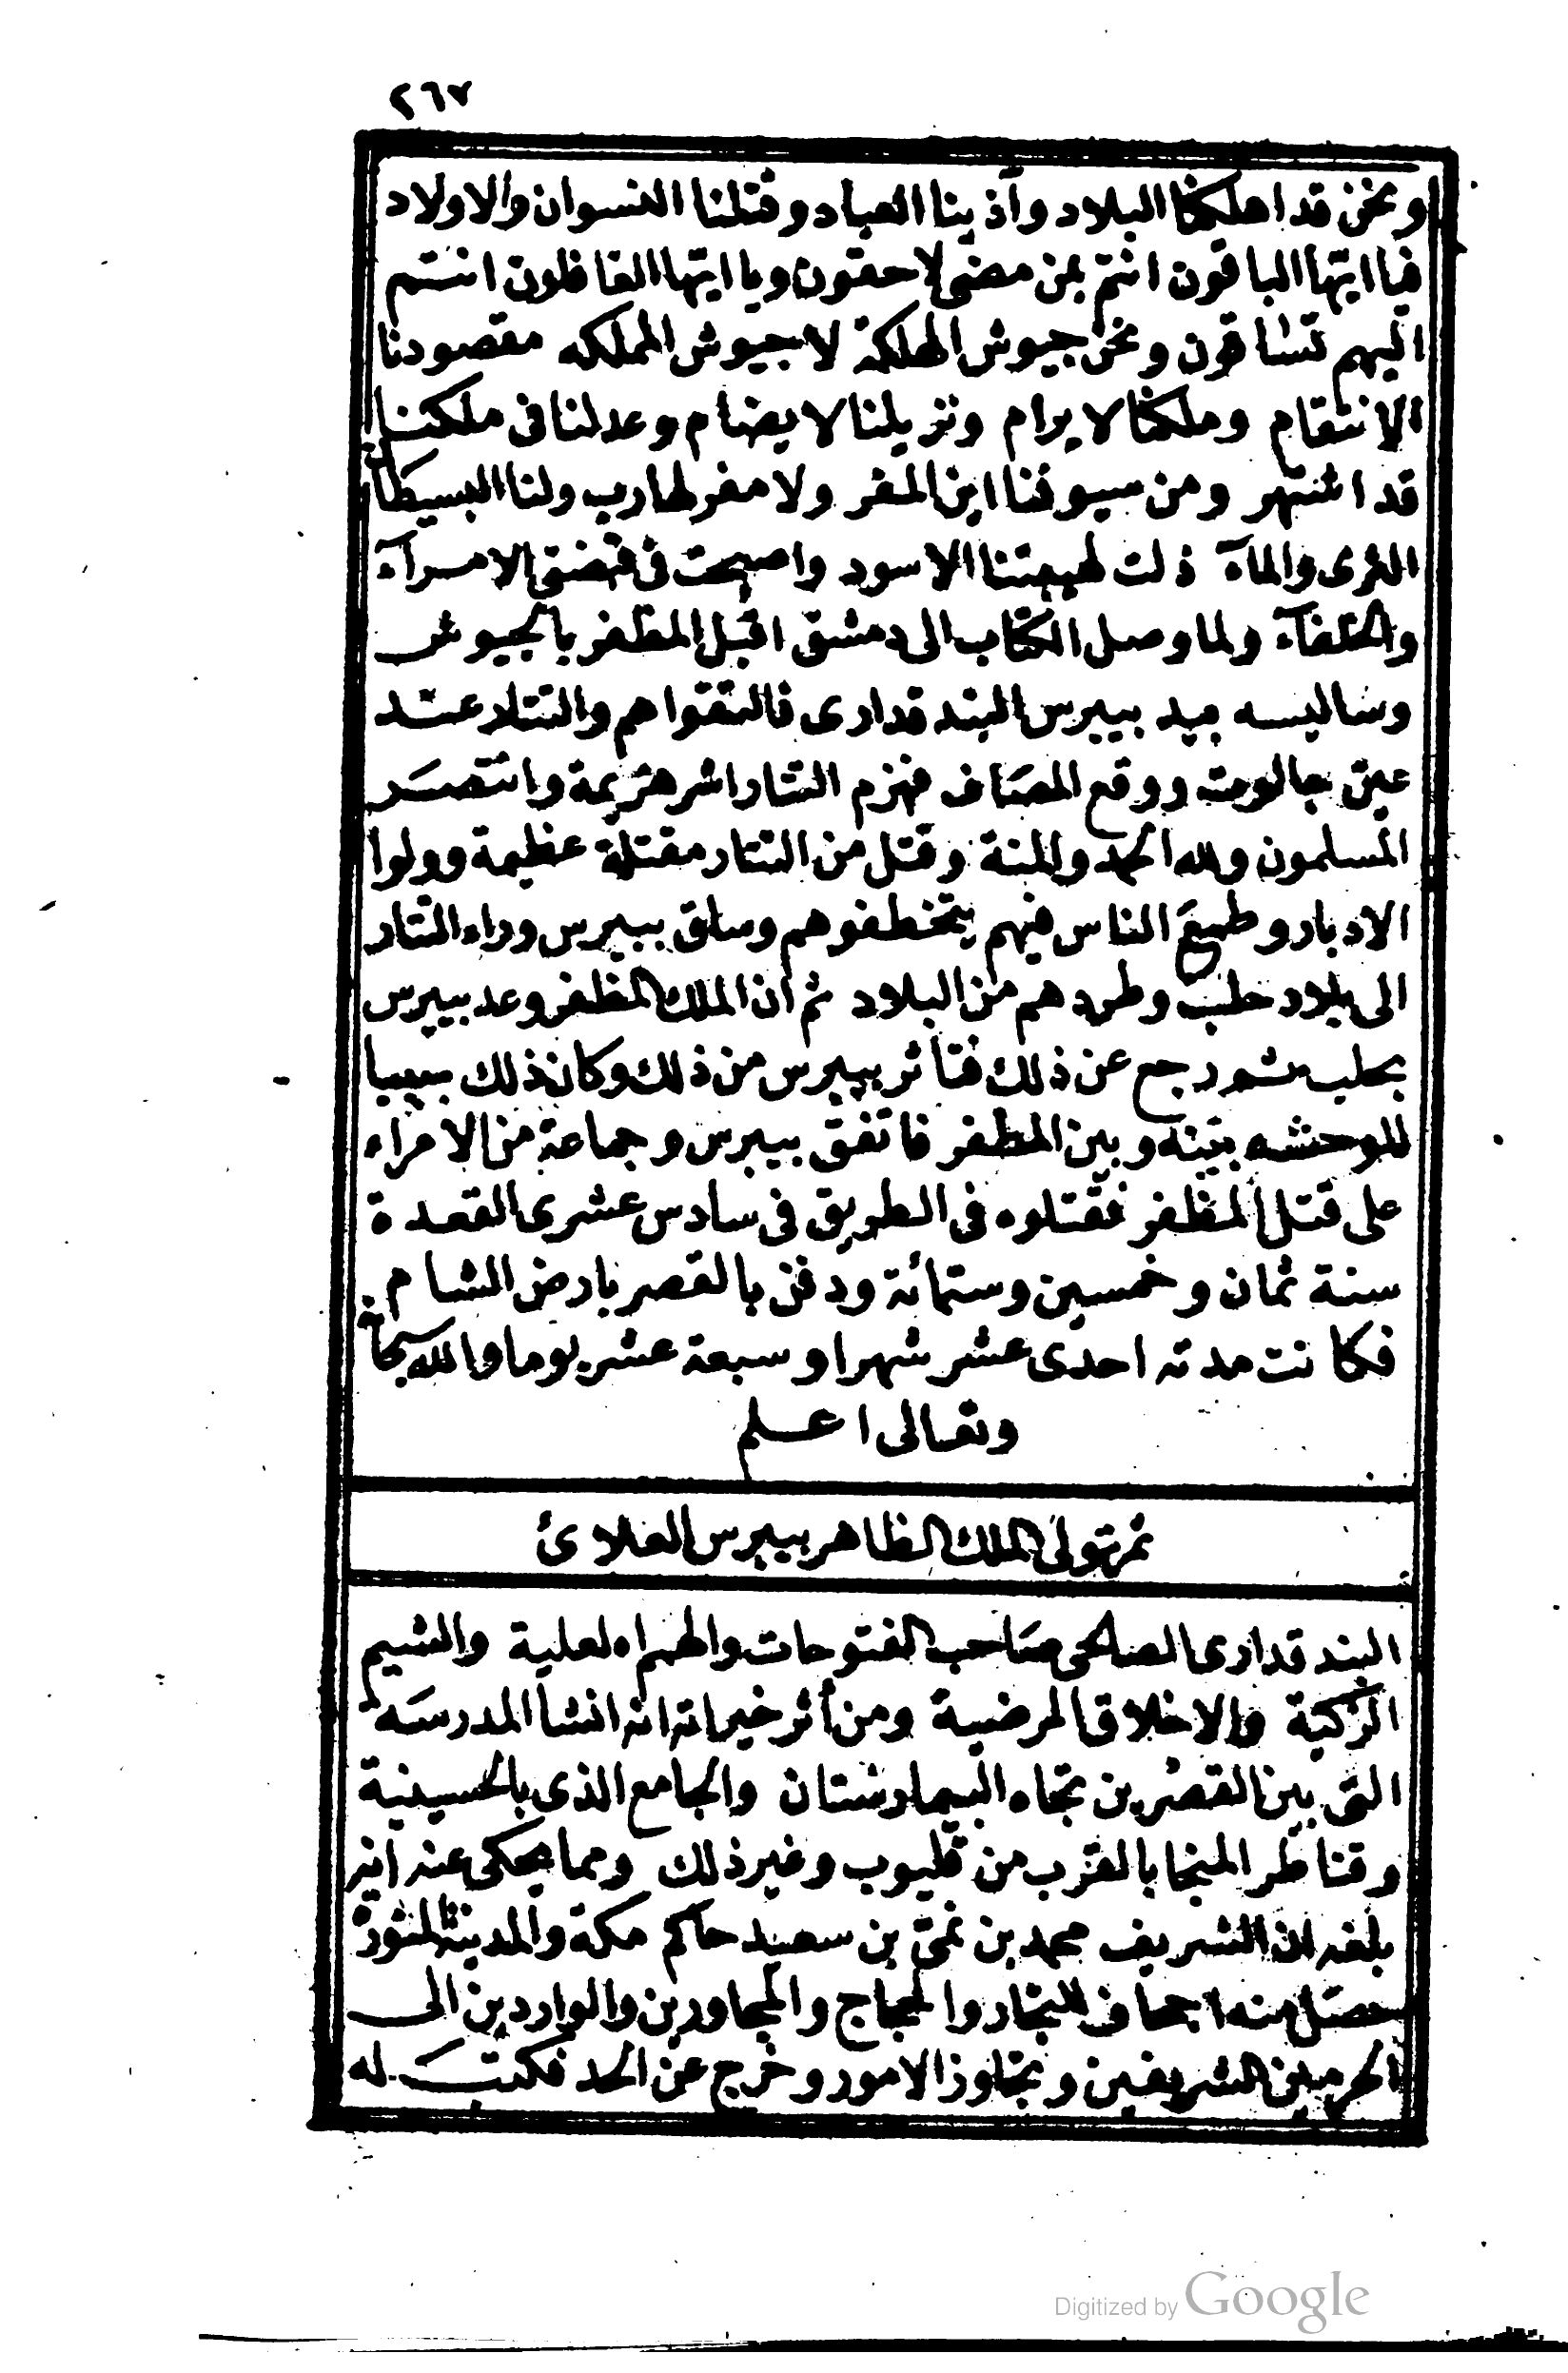 ٢٦٧
ونحن قد اهلكنا البلاد وآذينا العباد وقتلنا النسوان والاولاد
فيا ايتها الباقون انتم بمن مضى لاحقون ويا ايتها الغافلون انتم
اليهم تساقون ونحن جيوش الهلكة لا جيوش المملكه مقصودنا
الانتقام وملكنا لا يرام ونزيلنا لا يضام وعدلنا فى ملكنا
قد اشتهر ومن سيوفنا اين المفر ولا مفر لهارب ولنا البسيطان
الثرى والمآء ذلت لهيبتنا الاسود واصبحت فى قبضتى الامرآء
والخلفآء ولما وصل الكتاب الى دمشق اقبل المظفر بالجيوش
وشاليسه بيد بيبرس البندقدارى فالتقوا هم والتتار عند
عين جالوت ووقع المصاف فهزم التتار اشر هزيمة وانتصر
المسلمون ولله الحمد والمنة وقتل من التتار مقتلة عظيمة وولوا
الادبار وطمع الناس فيهم يتخطفوهم وساق بيبرس وراء التتار
الى بلاد حلب وطردهم من البلاد ثم ان الملك المظفر وعد بيبرس
بحلب ثم رجع عن ذلك فتأثر بيبرس من ذلك وكان ذلك سببا
للوحشه بينه وبين المظفر فاتفق بيبرس وجماعة من الامراء
على قتل المظفر فقتلوه فى الطريق فى سادس عشرى القعدة
سنة ثمان وخمسين وستمائة ودفن بالقصر بارض الشام
فكانت مدته احدى عشر شهرا وسبعة عشر يوما والله سبحانه
وتعالى اعلم
ثم تولى الملك الظاهر بيبرس العلائ
البندقدارى الصالحى صاحب الفتوحات والهمم العلية والشيم
الزكية والاخلاق المرضية ومن أثر خيراته انه انشا المدرسه
التى بين القصرين تجاه البيمارستان والجامع الذى بالحسينية
وقناطر المنجا بالقرب من قليوب وغير ذلك ومما يحكى عنه انه
بلغه ان الشريف محمد بن نمى بن سعيد حاكم مكة والمدينة المنورة
حصل منه اجحاف للتجار والحجاج والمجاورين والواردين الى
الحرمين الشريفين وتجاوز الامور وخرج عن الحد فكتب له
Digitized by Google